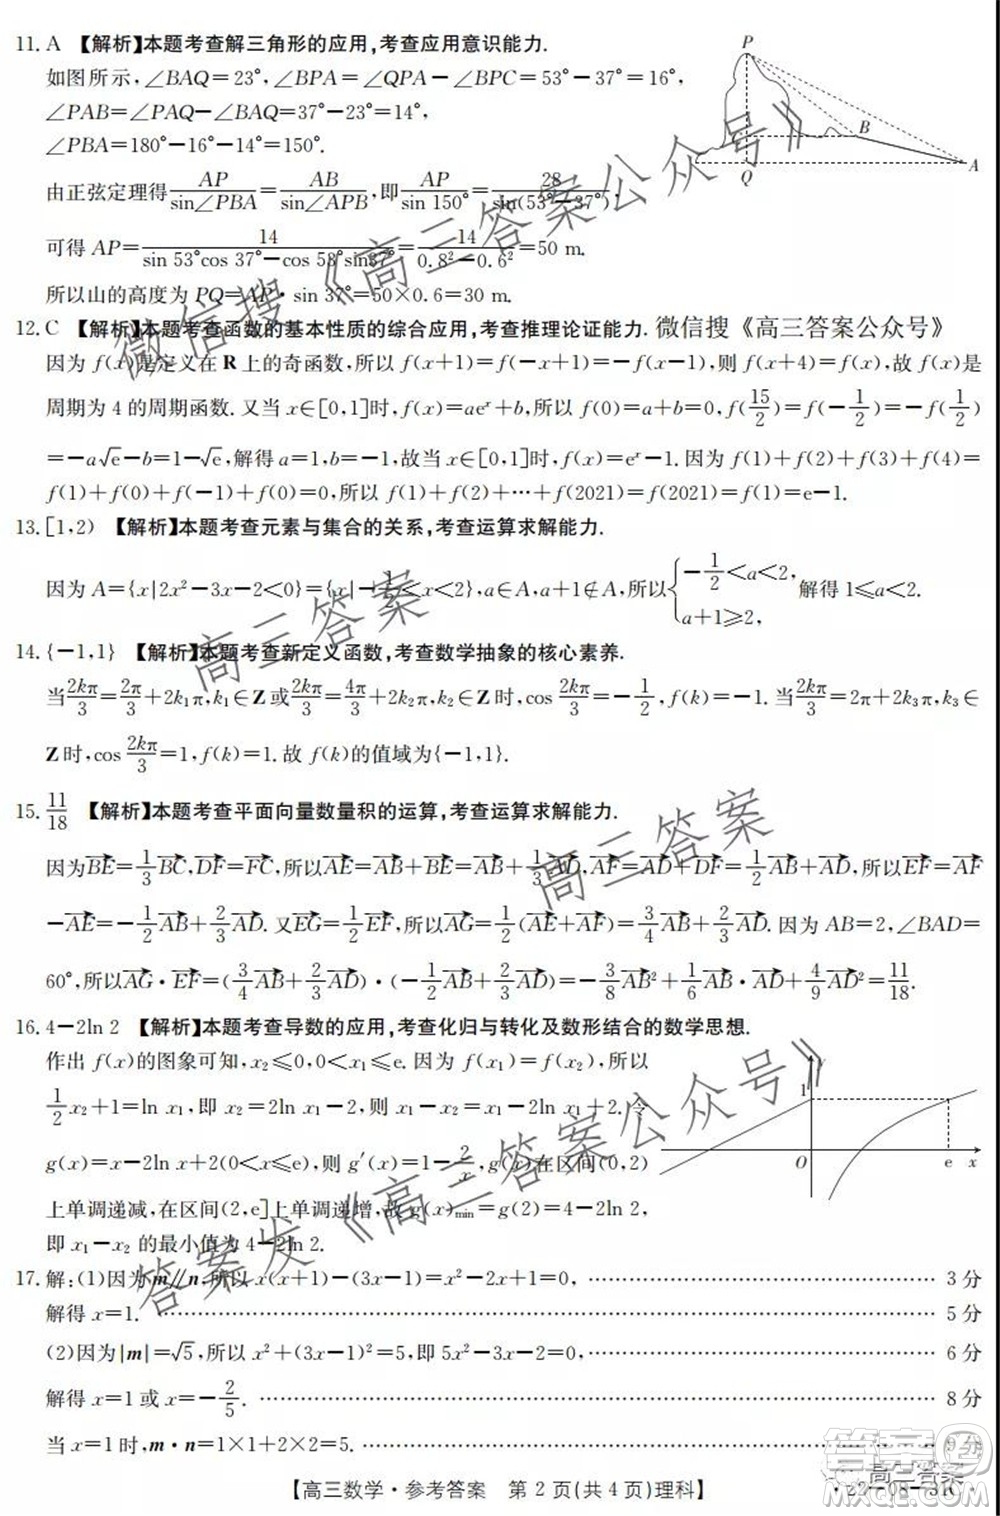 11. A 【解析】本题考查解三角形的应用,考查应用意识能力.
如图所示,∠BAQ=23°,∠BPA=∠QPA-∠BPC=53°-37°=16°,
∠PAB=∠PAQ-∠BAQ=37°-23°=14°,
∠PBA=180°-16°-14°=150°.
由正弦定理得AP/sin∠PBA=AB/sin∠APB,即AP/sin 150°=28/sin(53°-37°),
可得 AP=14/(sin 53°cos 37°-cos 53°sin37°)=14/(0.8²-0.6²)=50 m.
所以山的高度为 PQ=AP·sin 37°=50×0.6=30 m.
P
B
C
Q
A
12. C 【解析】本题考查函数的基本性质的综合应用,考查推理论证能力. 微信搜《高三答案公众号》
因为 f(x)是定义在 R 上的奇函数,所以 f(x+1)=f(-x+1)=-f(x-1),则 f(x+4)=f(x),故 f(x)是
周期为 4 的周期函数. 又当 x∈[0,1]时,f(x)=aeˣ+b,所以 f(0)=a+b=0,f(15/2)=f(-1/2)=-f(1/2)
=-a√e-b=1-√e,解得 a=1,b=-1,故当 x∈[0,1]时,f(x)=eˣ-1. 因为 f(1)+f(2)+f(3)+f(4)=
f(1)+f(0)+f(-1)+f(0)=0,所以 f(1)+f(2)+⋯+f(2021)=f(2021)=f(1)=e-1.
13. [1,2) 【解析】本题考查元素与集合的关系,考查运算求解能力.
因为 A={x|2x²-3x-2<0}={x|-1/2<x<2},a∈A,a+1∉A,所以{-1/2<a<2, a+1≥2, 解得 1≤a<2.
14. {-1,1} 【解析】本题考查新定义函数,考查数学抽象的核心素养.
当2kπ/3=2π/3+2k₁π,k₁∈Z或2kπ/3=4π/3+2k₂π,k₂∈Z 时,cos 2kπ/3=-1/2,f(k)=-1. 当2kπ/3=2π+2k₃π,k₃∈
Z 时,cos 2kπ/3=1,f(k)=1. 故 f(k)的值域为{-1,1}.
15. 11/18 【解析】本题考查平面向量数量积的运算,考查运算求解能力.
因为BE=1/3BC,DF=FC,所以AE=AB+BE=AB+1/3AD,AF=AD+DF=1/2AB+AD,所以EF=AF
-AE=-1/2AB+2/3AD. 又EG=1/2EF,所以AG=1/2(AE+AF)=3/4AB+2/3AD. 因为 AB=2,∠BAD=
60°,所以AG·EF=(3/4AB+2/3AD)·(-1/2AB+2/3AD)=-3/8AB²+1/6AB·AD+4/9AD²=11/18.
16. 4-2ln 2 【解析】本题考查导数的应用,考查化归与转化及数形结合的数学思想.
作出 f(x)的图象可知,x₂≤0,0<x₁≤e. 因为 f(x₁)=f(x₂),所以
1/2x₂+1=ln x₁,即 x₂=2ln x₁-2,则 x₁-x₂=x₁-2ln x₁+2. 令
g(x)=x-2ln x+2(0<x≤e),则 g′(x)=1-2/x,g(x)在区间(0,2)
上单调递减,在区间(2,e]上单调递增,故 g(x)min=g(2)=4-2ln 2,
即 x₁-x₂ 的最小值为 4-2ln 2.
y
1
O
e
x
17. 解:(1)因为 m∥n,所以 x(x+1)-(3x-1)=x²-2x+1=0, ⋯⋯ 3 分
解得 x=1. ⋯⋯ 5 分
(2)因为|m|=√5,所以 x²+(3x-1)²=5,即 5x²-3x-2=0, ⋯⋯ 6 分
解得 x=1 或 x=-2/5. ⋯⋯ 8 分
当 x=1 时,m·n=1×1+2×2=5. ⋯⋯ 9 分
【高三数学·参考答案 第 2 页(共 4 页)理科】
·22-08-31C·
微信搜《高三答案公众号》
高三答案
高三答案
答案发《高三答案公众号》
高三答案